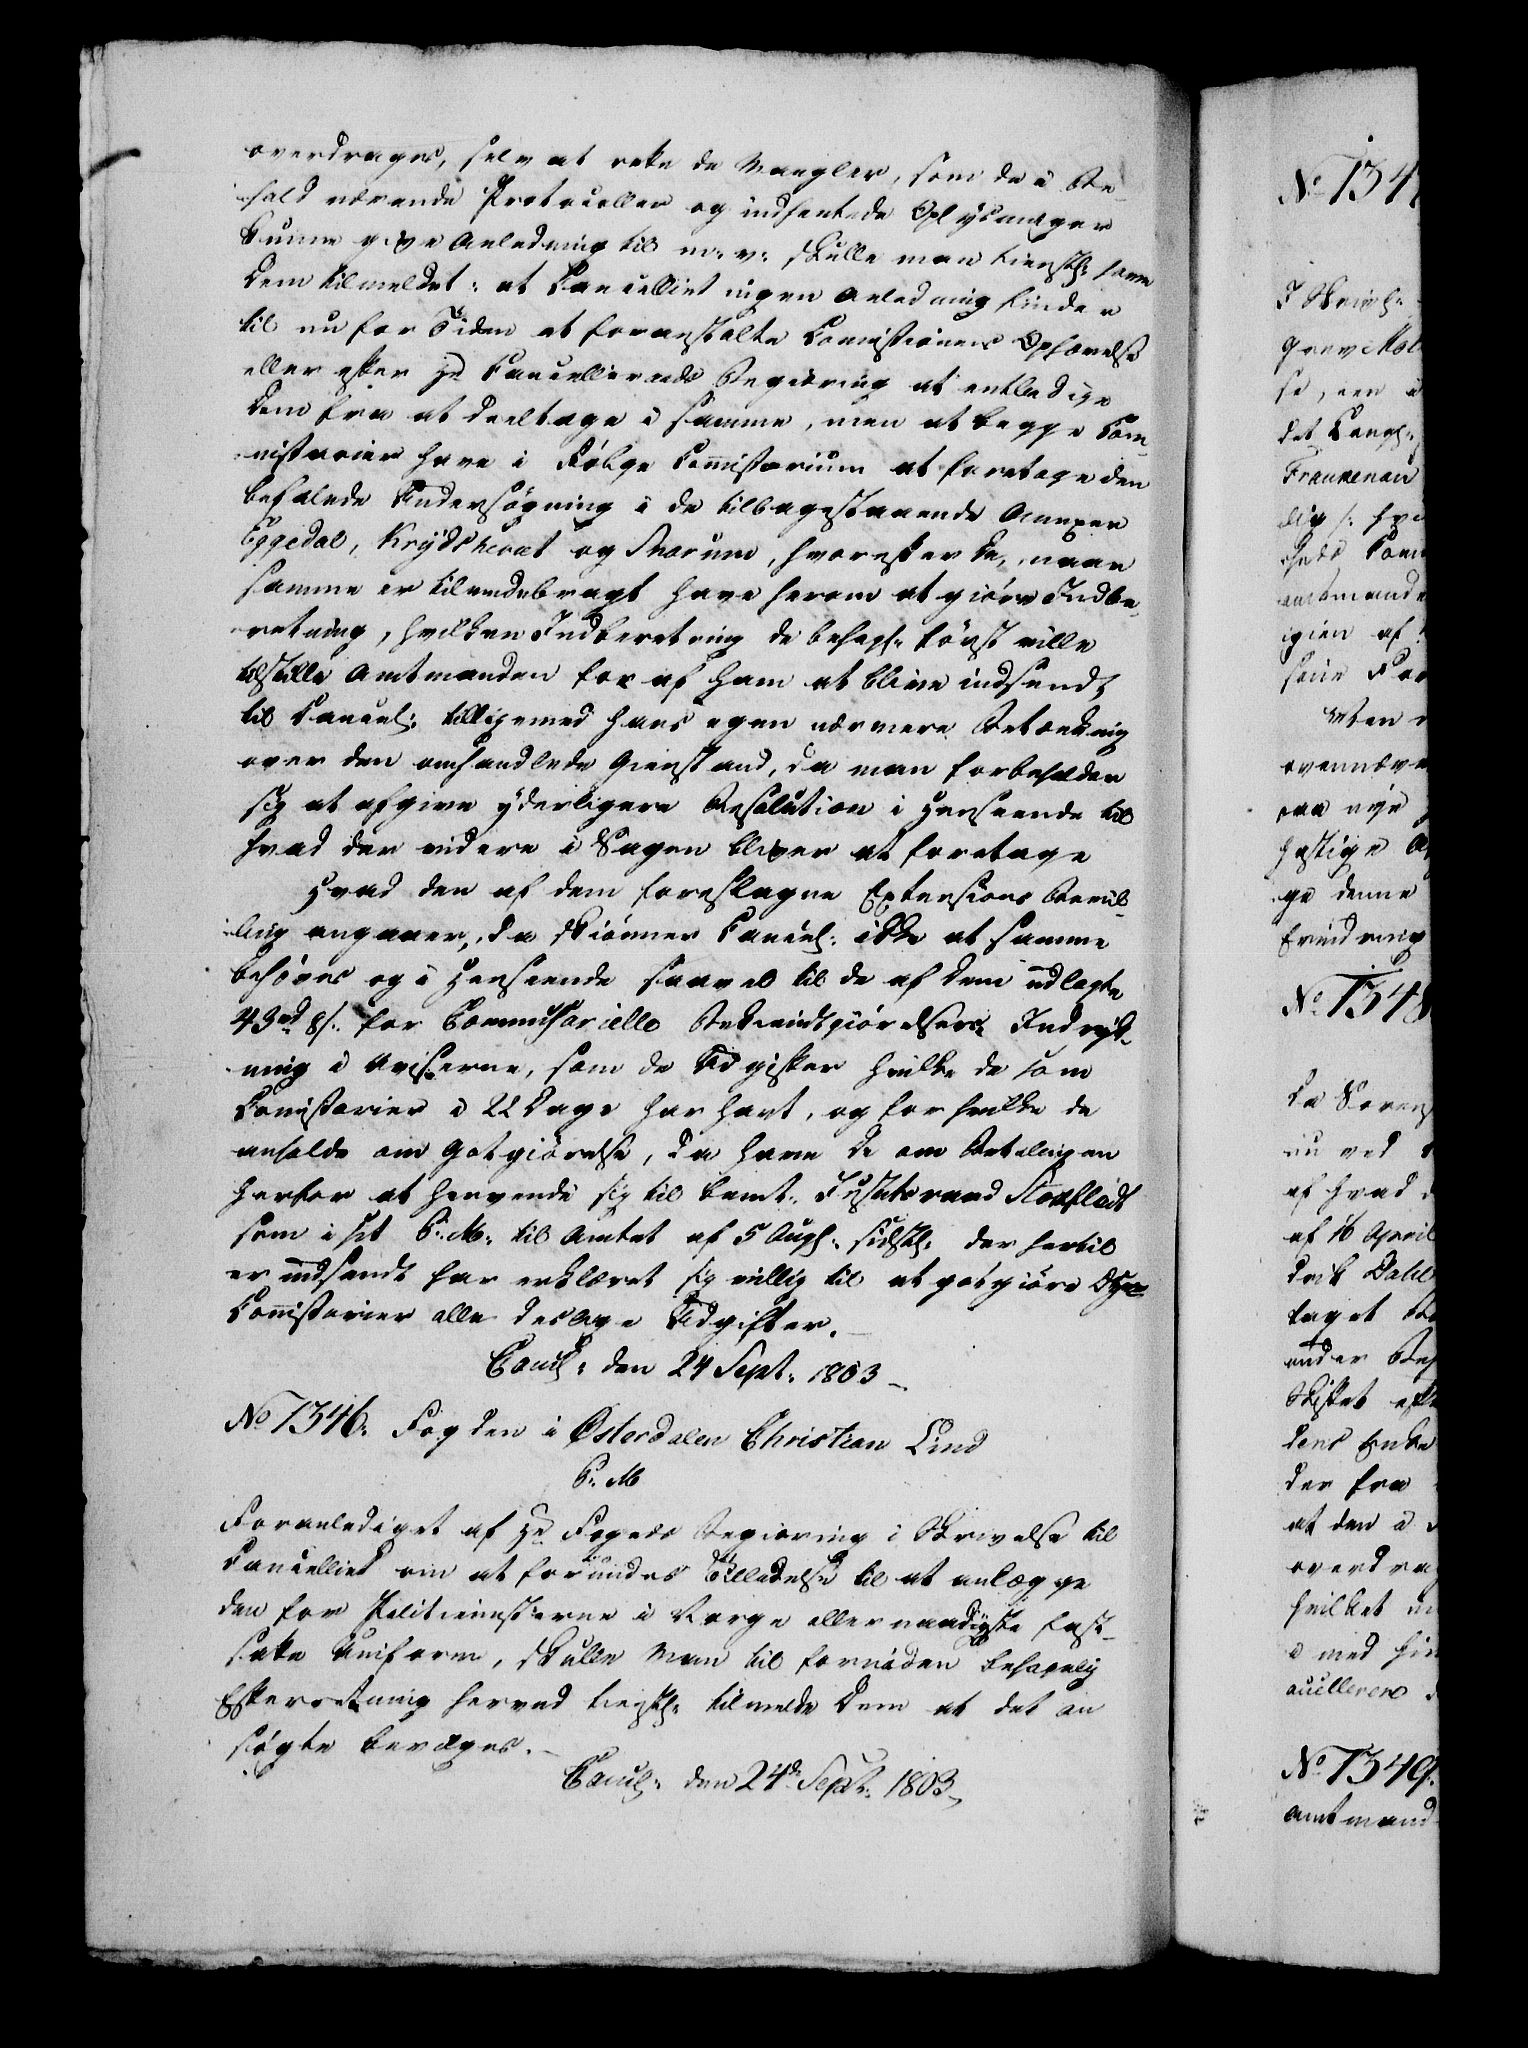 overdrages, selv at rette de Mangler, som de i Be-
hold værende Protocoller og indhentede Oplysninger
kunne give Anledning til m: v: skulle man tienstl: have
Dem tilmeldet: at Cancelliet ingen Anledning finder
til nu for Tiden at foranstalte Comissionens Ophævelse
eller efter Hr Cancellieraads Begiering at entledige
Dem fra at deeltage i samme, men at begge Com-
missarier have i Følge Comissorium at foretage den
befalede Undersøgning i de tilbagestaaende Annexer
Eggedal, Krydsherret og Snarum, hvorefter De, naar
samme er tilendebragt have herom at giøre Indbe-
retning, hvilken Indberetning de behagl: først ville
tilstille Amtmanden for af ham at blive indsendt
til Cancel: tilligemed hans egen nærmere Betænkning
over den omhandlede Gienstand, da man forbeholder
sig at afgive yderligere Resolution i Henseende til
hvad der videre i Sagen bliver at foretage
Hvad den af dem foreslagne Extensions Bevil-
ling angaaer, da skiønner Cancel: ikke at samme
behøves og i Henseende saavel til de af dem udlagte
43 rd 8 s: for Commissarielle Bekiendtgiørelsers Indryk-
ning i Aviserne, som de Udgifter hvilke de som
Comissarier i 22 Dage har havt, og for hvilke de
anholde om Gotgiørelse, da have De om Betalingen
herfor at henvende sig til bemt: Justitsraad Stockfledt
som i sit P: M: til Amtet af 5 Augl: sidstl: der hertil
er indsendt har erklæret sig villig til at gotgiøre
Comissarier alle deslige Udgifter.
Cancl: den 24 Sept: 1803
No 1346. Fogden i Østerdalen Christian Lind
P: M
Foranlediget af Hr Fogeds Begiering i Skrivelse til
Cancelliet om at forundes Tilladelse til at anlægge
den for Politiemestrene i Norge allernaadigste fast-
satte Uniform, skulle Man til forniøden behagelig
Efterretning herved tienstl: tilmelde Dem at det an
søgte bevilges.
Cancl: den 24de Sept: 1803
No 134
I Skrivl:
Grev Mol
se, een i
det Congl:
Frankenau
amtmande
igien af
sine For
Men
ovennævn
paa nye
hastige
ge denne
Erindring
No 1348
Da Sorens
nu ved
af hvad
af 16 April
drik Dahl
taget
under
Skiftet eft
dens Enke
der fra
at den i
overdra
hvilket
i med hin
No 1349.
Amtmand